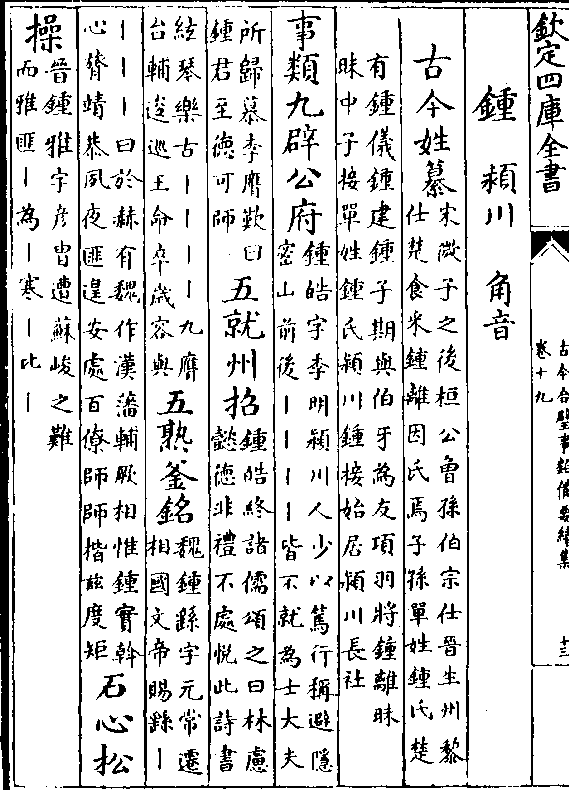 欽定四庫全書
古今合璧事類備要續集
卷十九
十三
鍾 潁川 角音
古今姓纂
宋微子之後桓公魯孫伯宗仕晉生州黎
仕楚食采鍾離因氏焉子孫單姓鍾氏楚
有鍾儀鍾建鍾子期與伯牙為友項羽將鍾離昧
昧中子接單姓鍾氏潁川鍾接始居潁川長社
事類九辟公府
鍾皓字季明潁川人少以篤行稱避隱
密山前後丨丨丨丨皆不就為士大夫
所歸慕李膺歎曰
鍾君至德可師
五就州招
鍾皓終諸儒頌之曰林慮
懿德非禮不處悦此詩書
絃琴樂古丨丨丨丨九膺
台輔逡巡王命卒歲容與
五熟釜銘
魏鍾繇字元常遷
相國文帝賜繇丨
丨丨丨曰於赫有魏作漢藩輔厥相惟鍾實幹
心膂靖恭夙夜匪遑安處百僚師師楷兹度矩
石心松
操
晉鍾雅字彦胄遭蘇峻之難
而雅匪丨為丨寒丨比丨